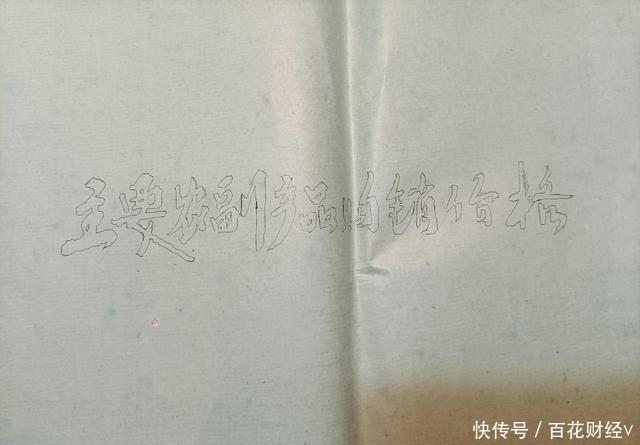 主要农副产品购销价格
快传号／百花财经v